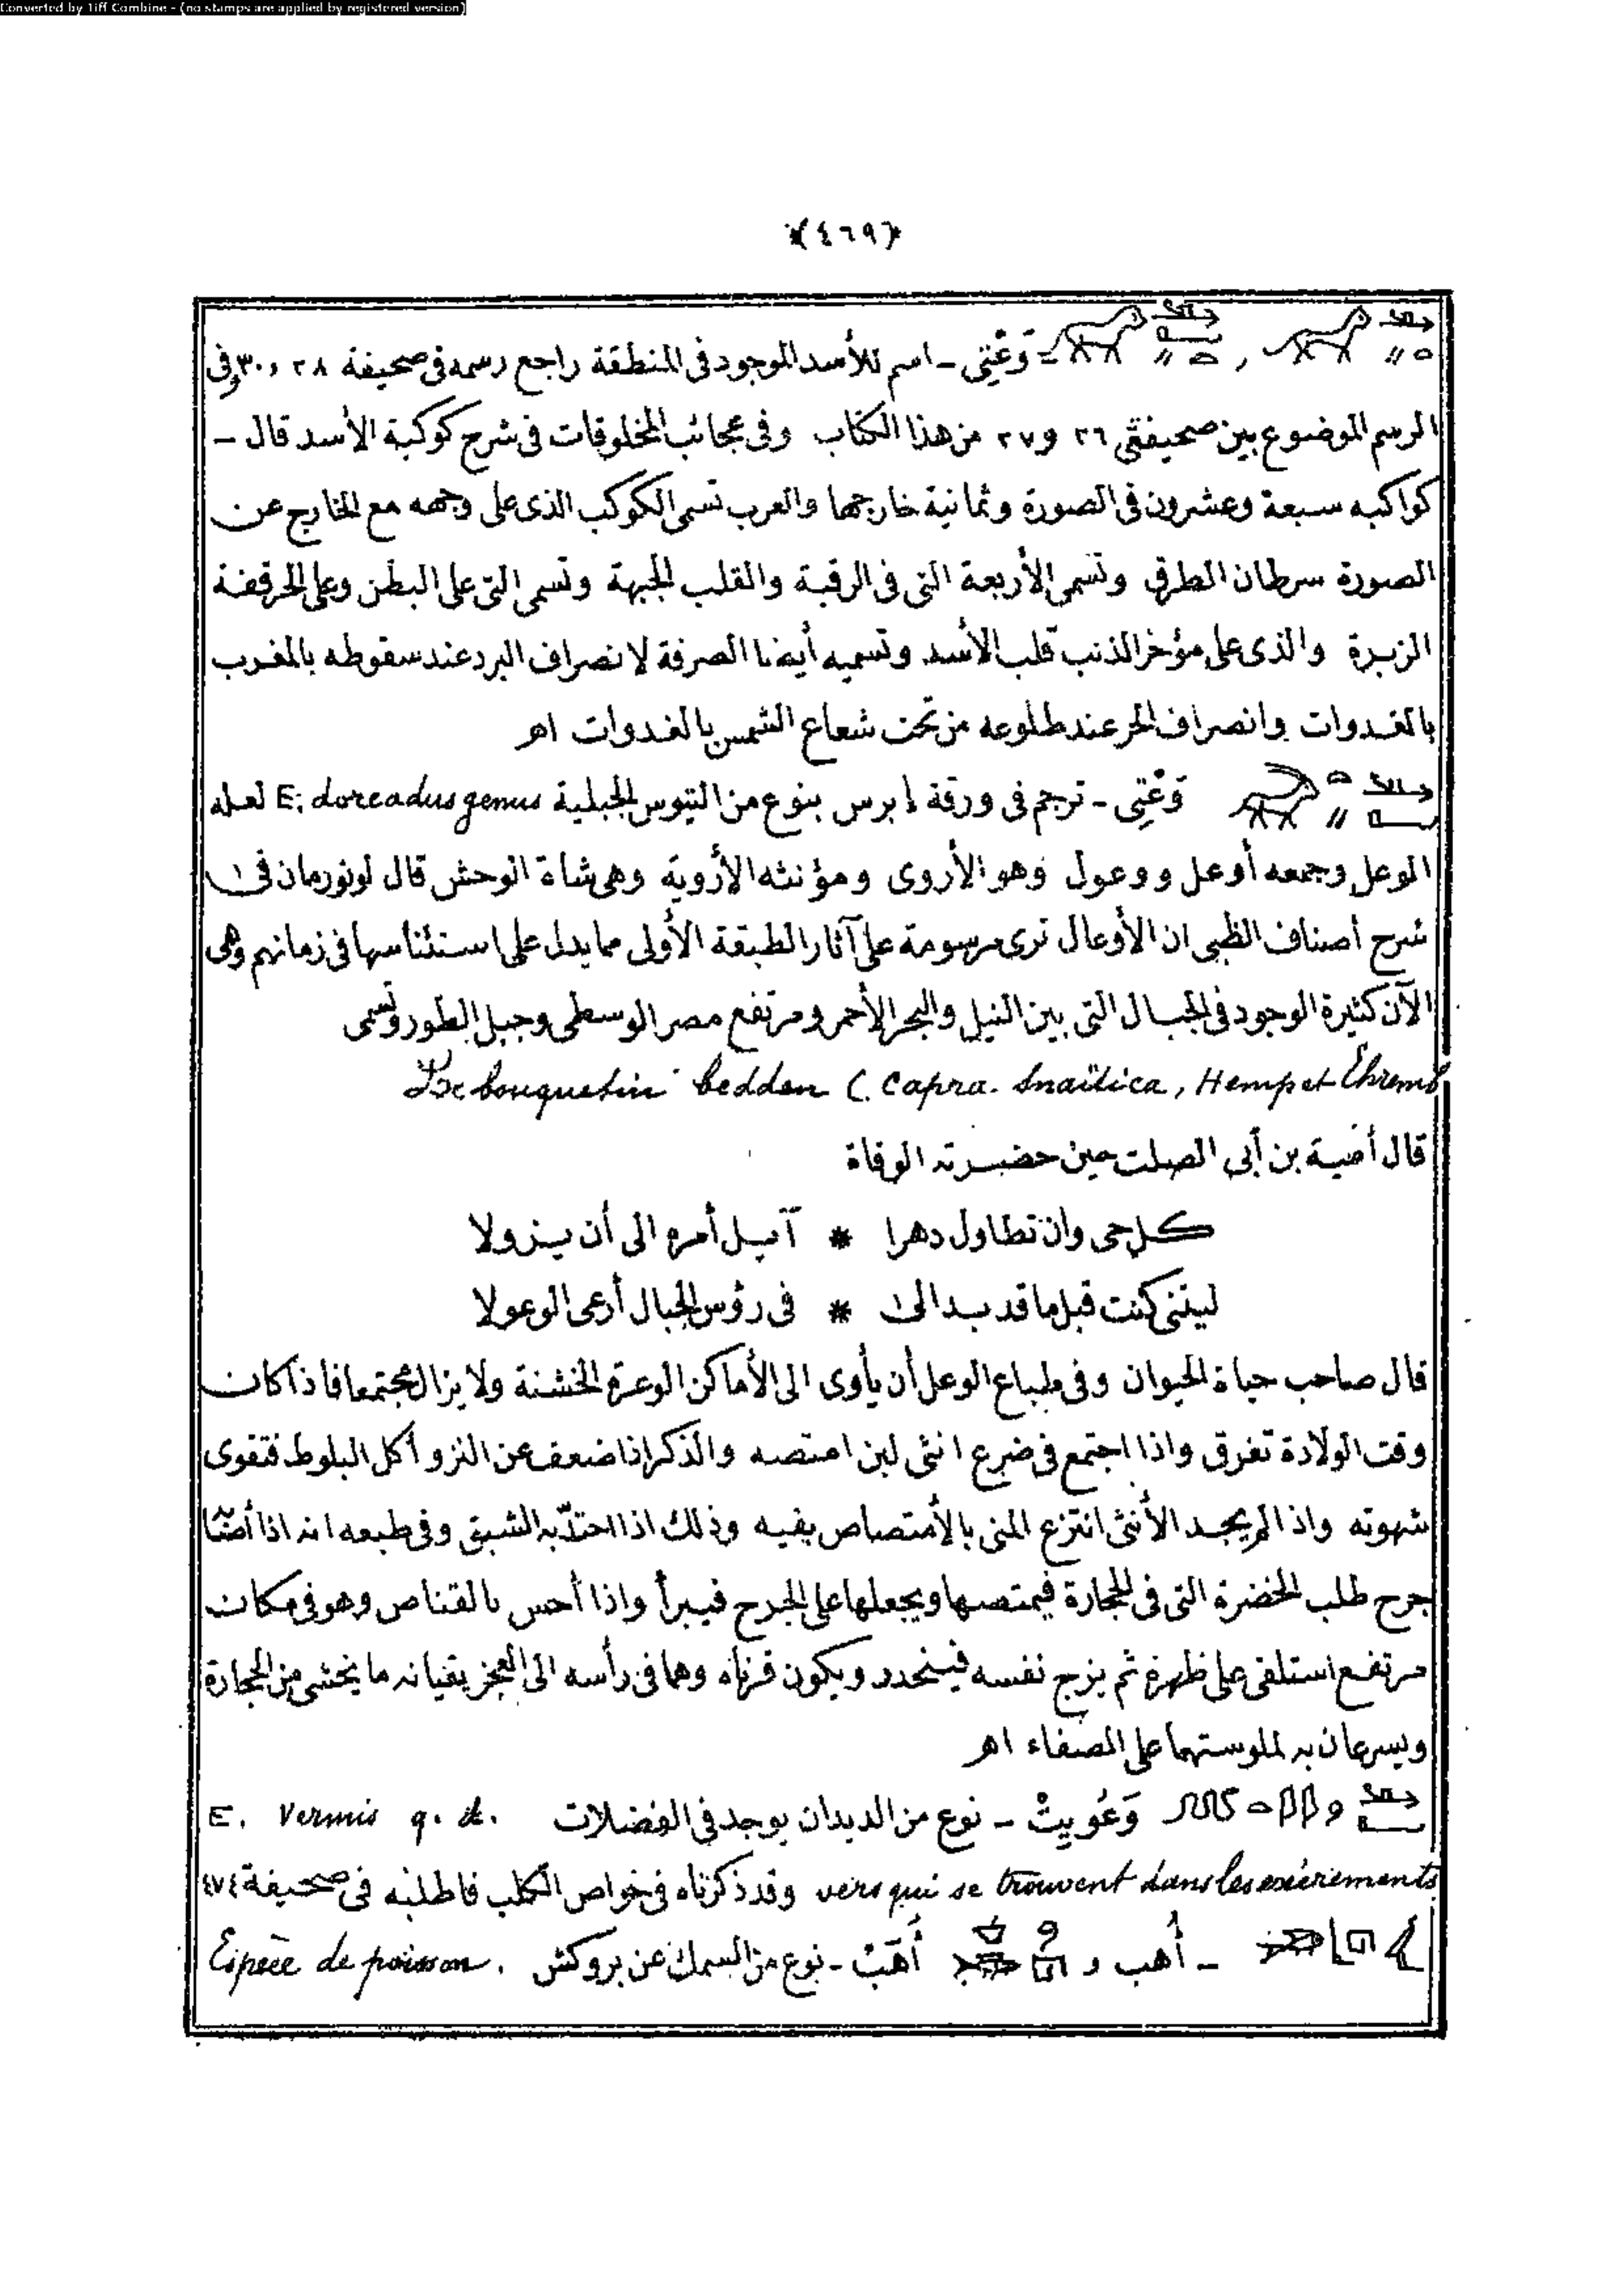 Converted by Tiff Combine - (no stamps are applied by registered version)
﴿٤٦٩﴾
وَعْتِي - اسم للأسد الموجود فى المنطقة راجع رسمه فى صحيفة ٢٨ و ٣٠ وفى
الرسم الموضوع بين صحيفتى ٢٦ و ٢٧ من هذا الكتاب وفى عجائب المخلوقات فى شرح كوكبة الأسد قال -
كواكبه سبعة وعشرون فى الصورة وثمانية خارجها والعرب تسمى الكوكب الذى على وجهه مع الخارج عن
الصورة سرطان الطرفى وتسمى الأربعة التى فى الرقبة والقلب الجبهة وتسمى التى على البطن وعلى الحرقفة
الزبرة والذى على مؤخر الذنب قلب الأسد وتسميه أيضا الصرفة لانصراف البرد عند سقوطه بالمغرب
بالغدوات وانصراف الحر عند طلوعه من تحت شعاع الشمس بالغدوات اهـ
وَعْتِي - ترجم فى ورقة إبرس بنوع من التيوس الجبلية E; dorcadus genus لعله
الوعل وجمعه أوعل ووعول وهو الأروى ومؤنثه الأروية وهى شاة الوحش قال لونورمان فى
شرح أصناف الظبى ان الأوعال ترى مرسومة على آثار الطبقة الأولى مما يدل على استئناسها فى زمانهم وهى
الآن كثيرة الوجود فى الجبال التى بين النيل والبحر الأحمر ومرتفع مصر الوسطى وجبل الطور وتسمى
Le bouquetin bedden (. Capra. Snaïtica, Hemp et Ehremb
قال أمية بن أبى الصلت حين حضرته الوفاة
كل حى وان تطاول دهرا * آيل أمره الى أن يزولا
ليتنى كنت قبل ما قد بدا لى * فى رؤس الجبال أرعى الوعولا
قال صاحب حياة الحيوان وفى طباع الوعل أن يأوى الى الأماكن الوعرة الخشنة ولا يزال مجتمعا فاذا كان
وقت الولادة تفرق واذا اجتمع فى ضرع انثى لبن امتصه والذكر اذا ضعف عن النزو أكل البلوط فتقوى
شهوته واذا لم يجد الأنثى انتزع المنى بالأمتصاص بفيه وذلك اذا احتدّ به الشبق وفى طبعه انه اذا أصابه
جرح طلب الخضرة التى فى الحجارة فيمتصها ويجعلها على الجرح فيبرأ واذا أحس بالقناص وهو فى مكان
مرتفع استلقى على ظهره ثم يزج نفسه فينحدر ويكون قرناه وهما فى رأسه الى العجز يقيانه ما يخشى من الحجارة
ويسرعان به لملوستهما على الصفاء اهـ
وَعُوبِيتْ - نوع من الديدان يوجد فى الفضلات E. Vermis q. d.
vers qui se trouvent dans les excrements وقد ذكرناه فى خواص الكلب فاطلبه فى صحيفة ٤٧٤
- أُهب و أُهَبْ - نوع من السمك عن بروكش . Espèce de poisson